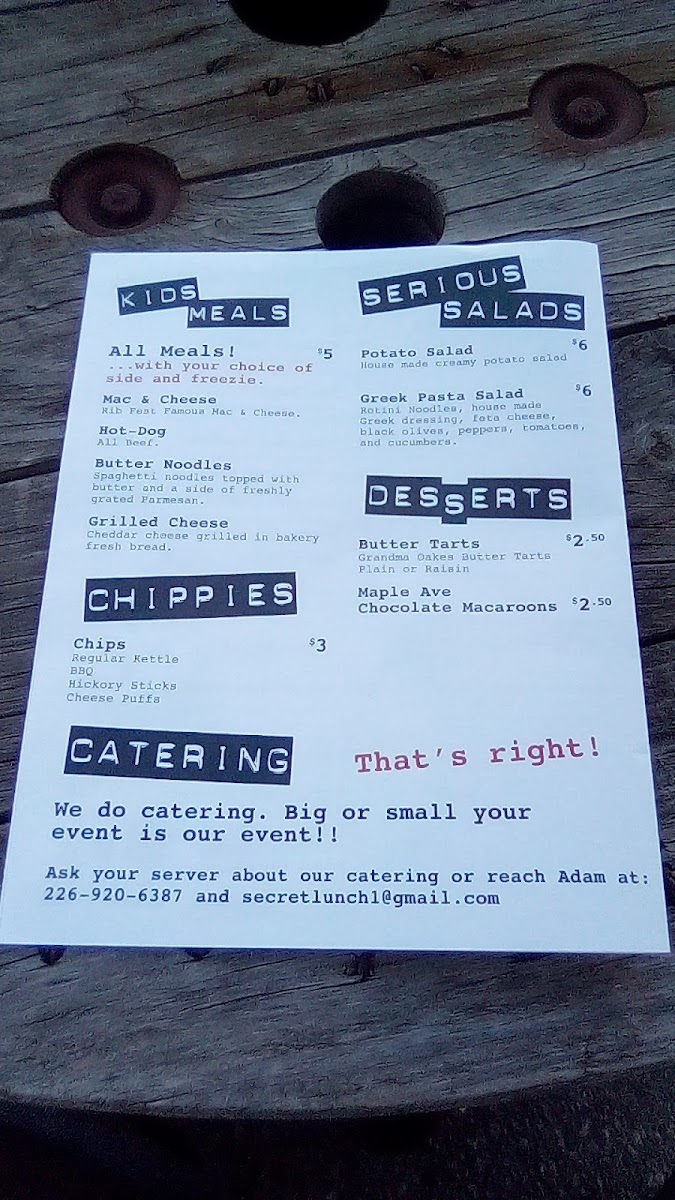 KIDS
MEALS
All Meals! $5
...with your choice of
side and freezie.
Mac & Cheese
Rib Fest Famous Mac & Cheese.
Hot-Dog
All Beef.
Butter Noodles
Spaghetti noodles topped with
butter and a side of freshly
grated Parmesan.
Grilled Cheese
Cheddar cheese grilled in bakery
fresh bread.
CHIPPIES
Chips $3
Regular Kettle
BBQ
Hickory Sticks
Cheese Puffs
SERIOUS
SALADS
Potato Salad $6
House made creamy potato salad
Greek Pasta Salad $6
Rotini Noodles, house made
Greek dressing, feta cheese,
black olives, peppers, tomatoes,
and cucumbers.
DESSERTS
Butter Tarts $2.50
Grandma Oakes Butter Tarts
Plain or Raisin
Maple Ave
Chocolate Macaroons $2.50
CATERING
That's right!
We do catering. Big or small your
event is our event!!
Ask your server about our catering or reach Adam at:
226-920-6387 and secretlunch1@gmail.com